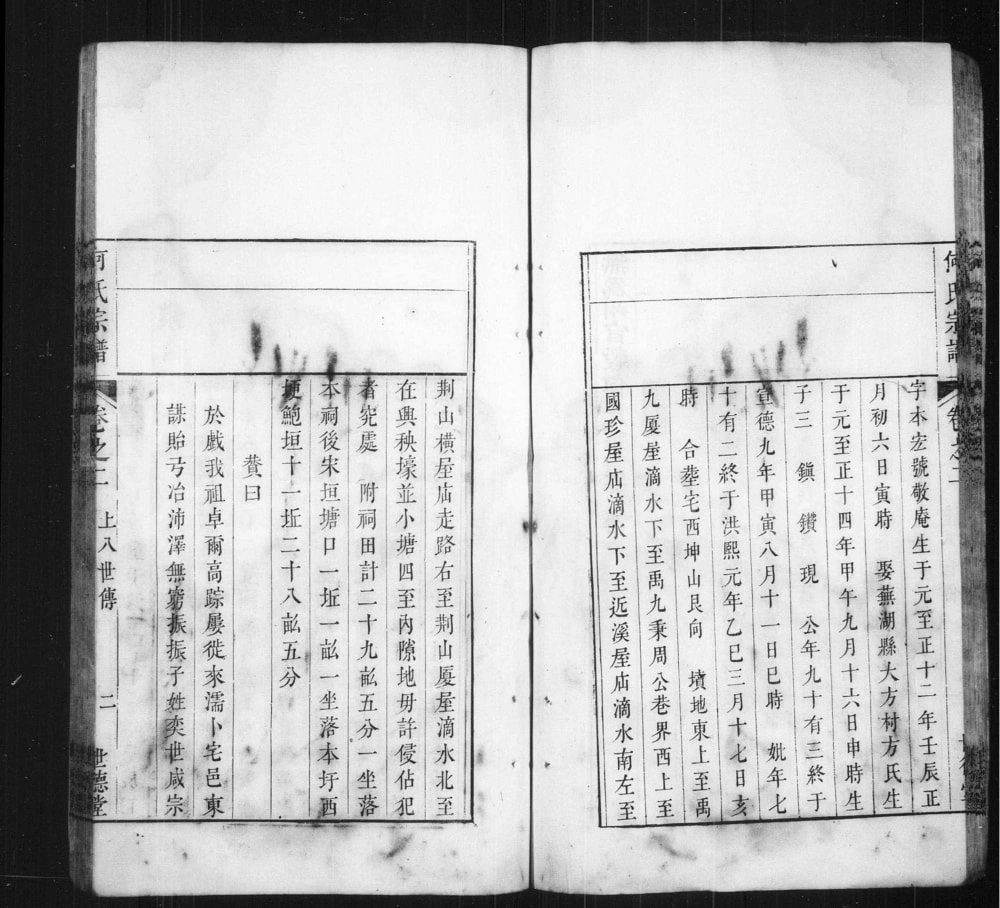 何氏宗譜
卷之二
字本宏號敬庵生于元至正十二年壬辰正
月初六日寅時 娶蕪湖縣大方村方氏生
于元至正十四年甲午九月十六日申時生
子三 鎮 鑽 現 公年九十有三終于
宣德九年甲寅八月十一日巳時 妣年七
十有二終于洪熙元年乙巳三月十七日亥
時 合塟宅西坤山艮向 墳地東上至禹
九厦屋滴水下至禹九秉周公巷界西上至
國珍屋庙滴水下至近溪屋庙滴水南左至
荆山橫屋庙走路右至荆山厦屋滴水北至
在興秧壕並小塘四至內隙地毋許侵佔犯
者究處 附祠田計二十九畝五分一坐落
本祠後宋垣塘口一坵一畝一坐落本圩西
埂鮑垣十一坵二十八畝五分
贊曰
於戲我祖卓爾高踪屢徙來濡卜宅邑東
謀貽弓冶沛澤無窮振振子姓奕世咸宗
何氏宗譜
卷之二
上八世傳
二
世德堂